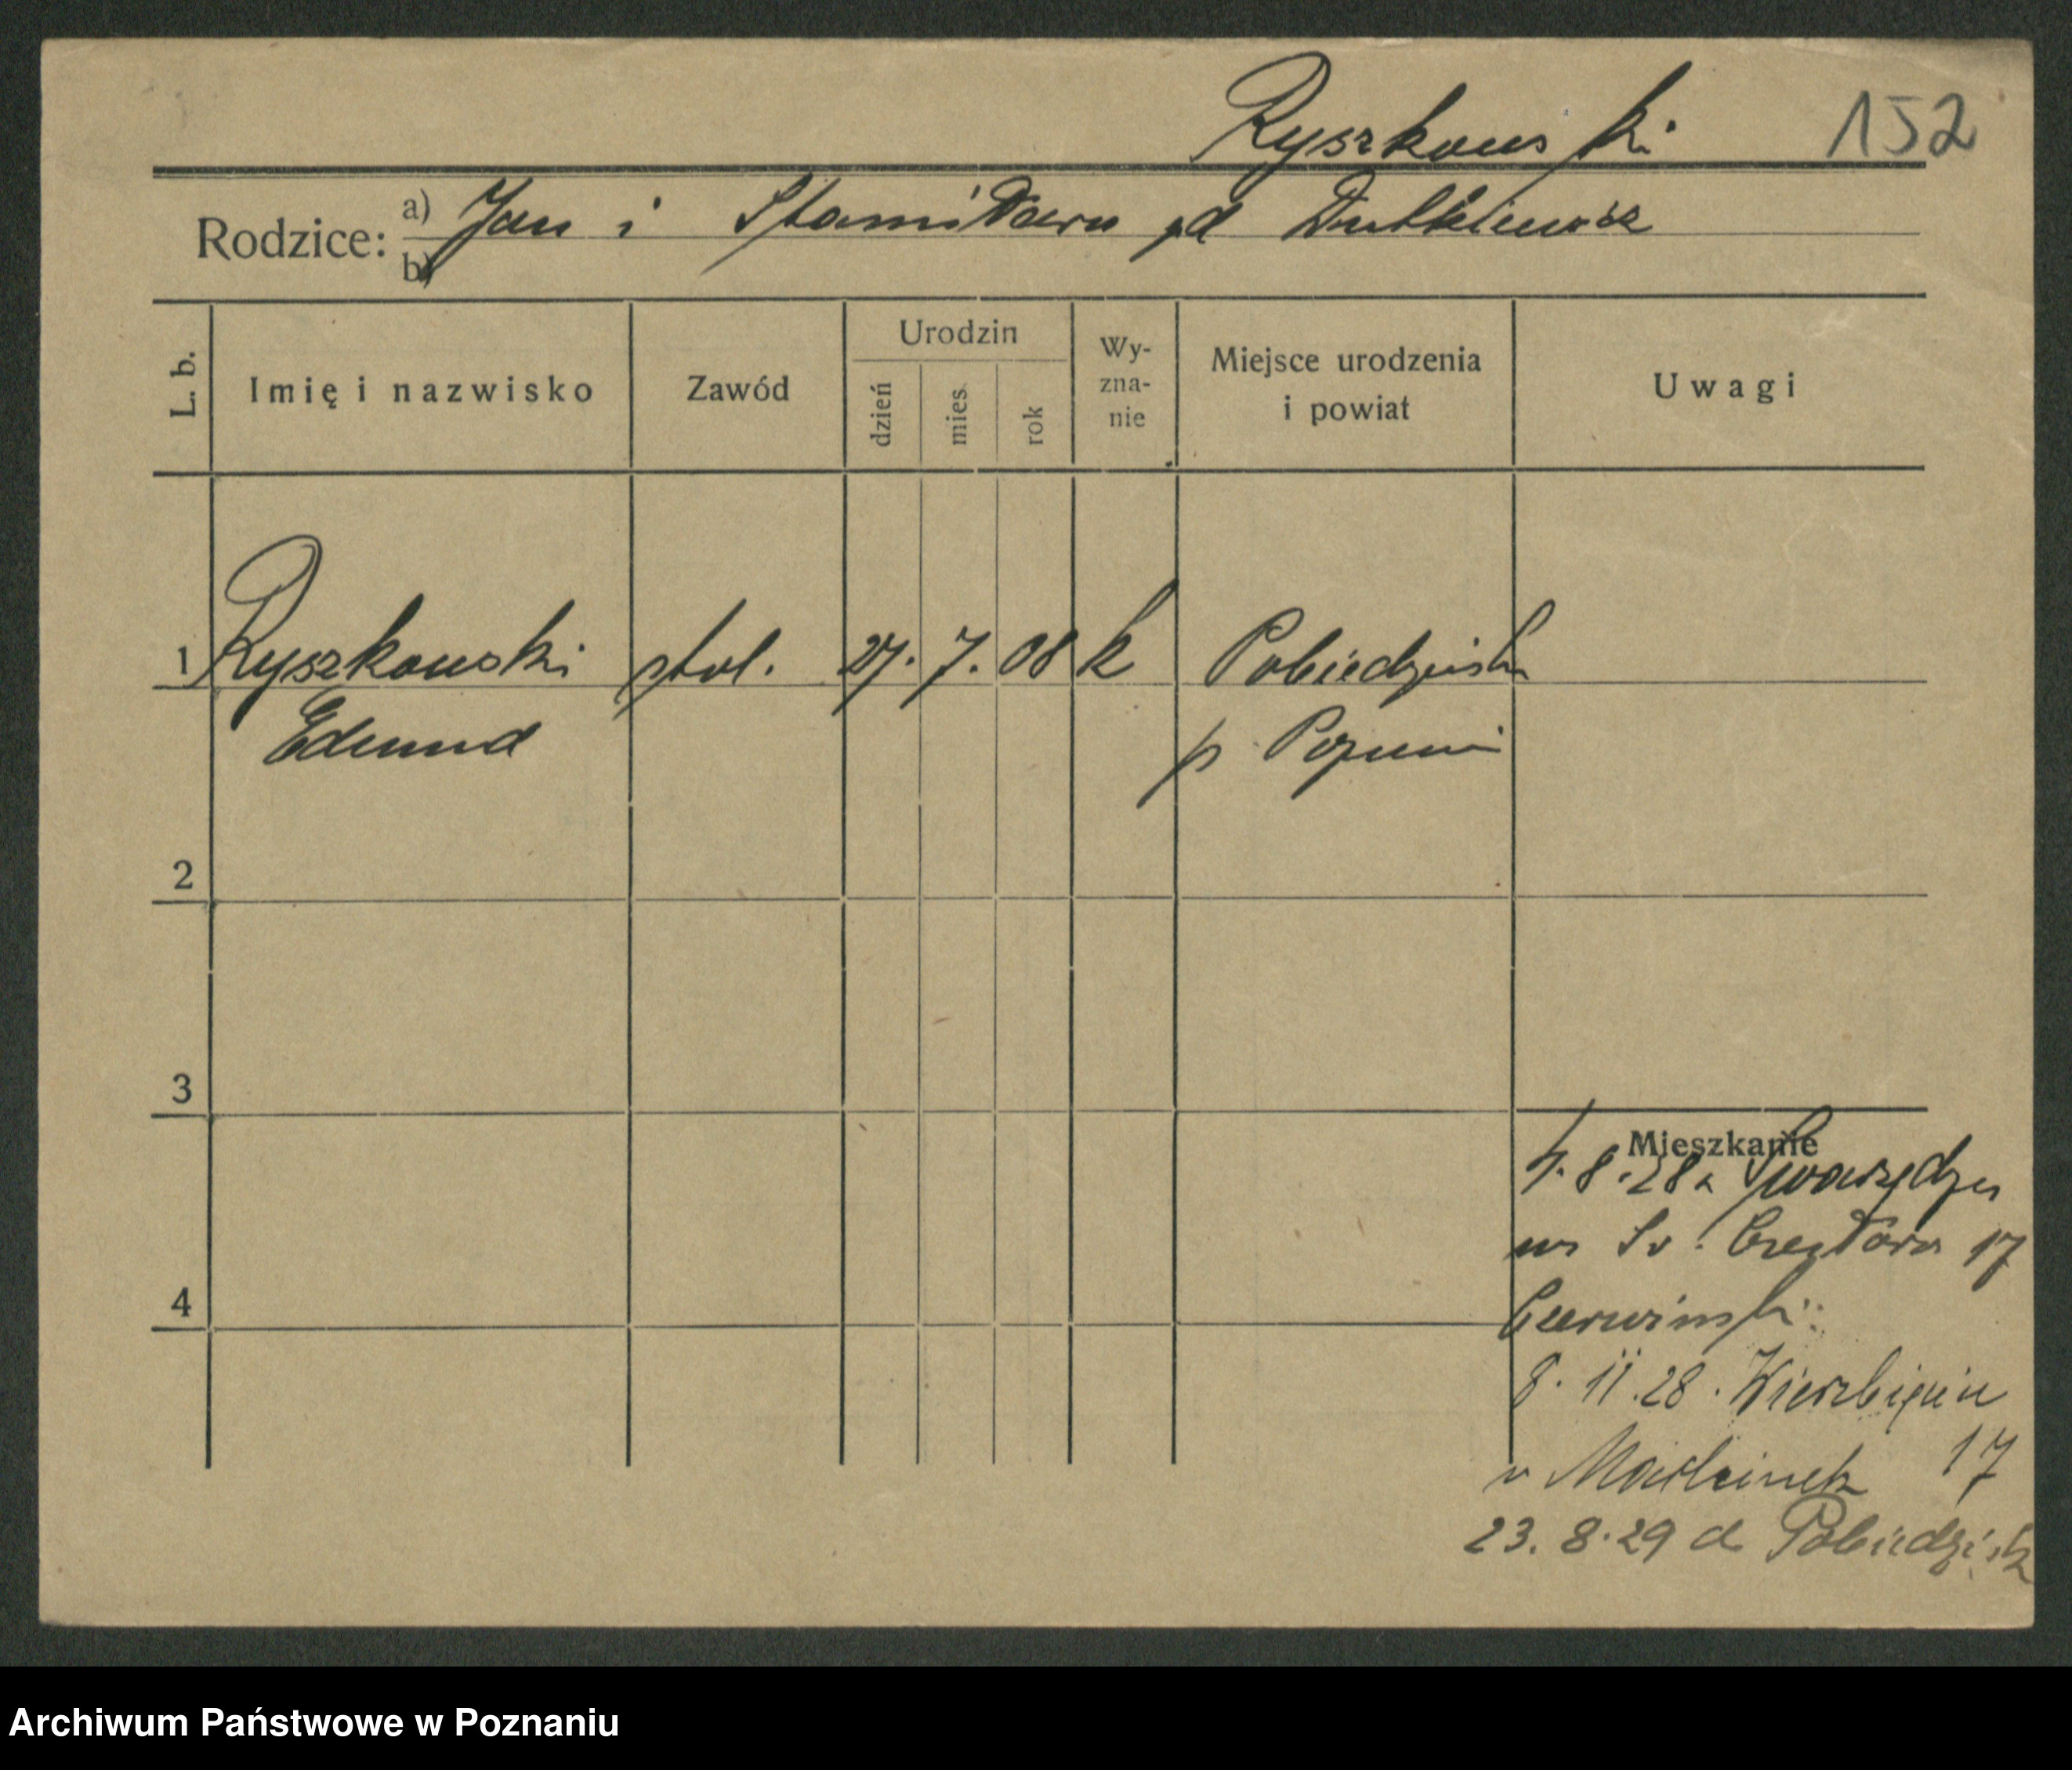 Ryszkowski 152
Rodzice: a) Jan i Stanisława zd Dutkiewicz
b)
L. b. Imię i nazwisko Zawód Urodzin dzień mies. rok Wy-zna-nie Miejsce urodzenia i powiat Uwagi
1 Ryszkowski stol. 27. 7. 08 k Pobiedziska
Edmund p Poznań
2
3
Mieszkanie
4.8.28 z Swarzędza
Czesława 17
4
Czerwiński
8. 11. 28. Wierzbięcin
u Marcinek 17
23. 8. 29 do Pobiedzisk
Archiwum Państwowe w Poznaniu